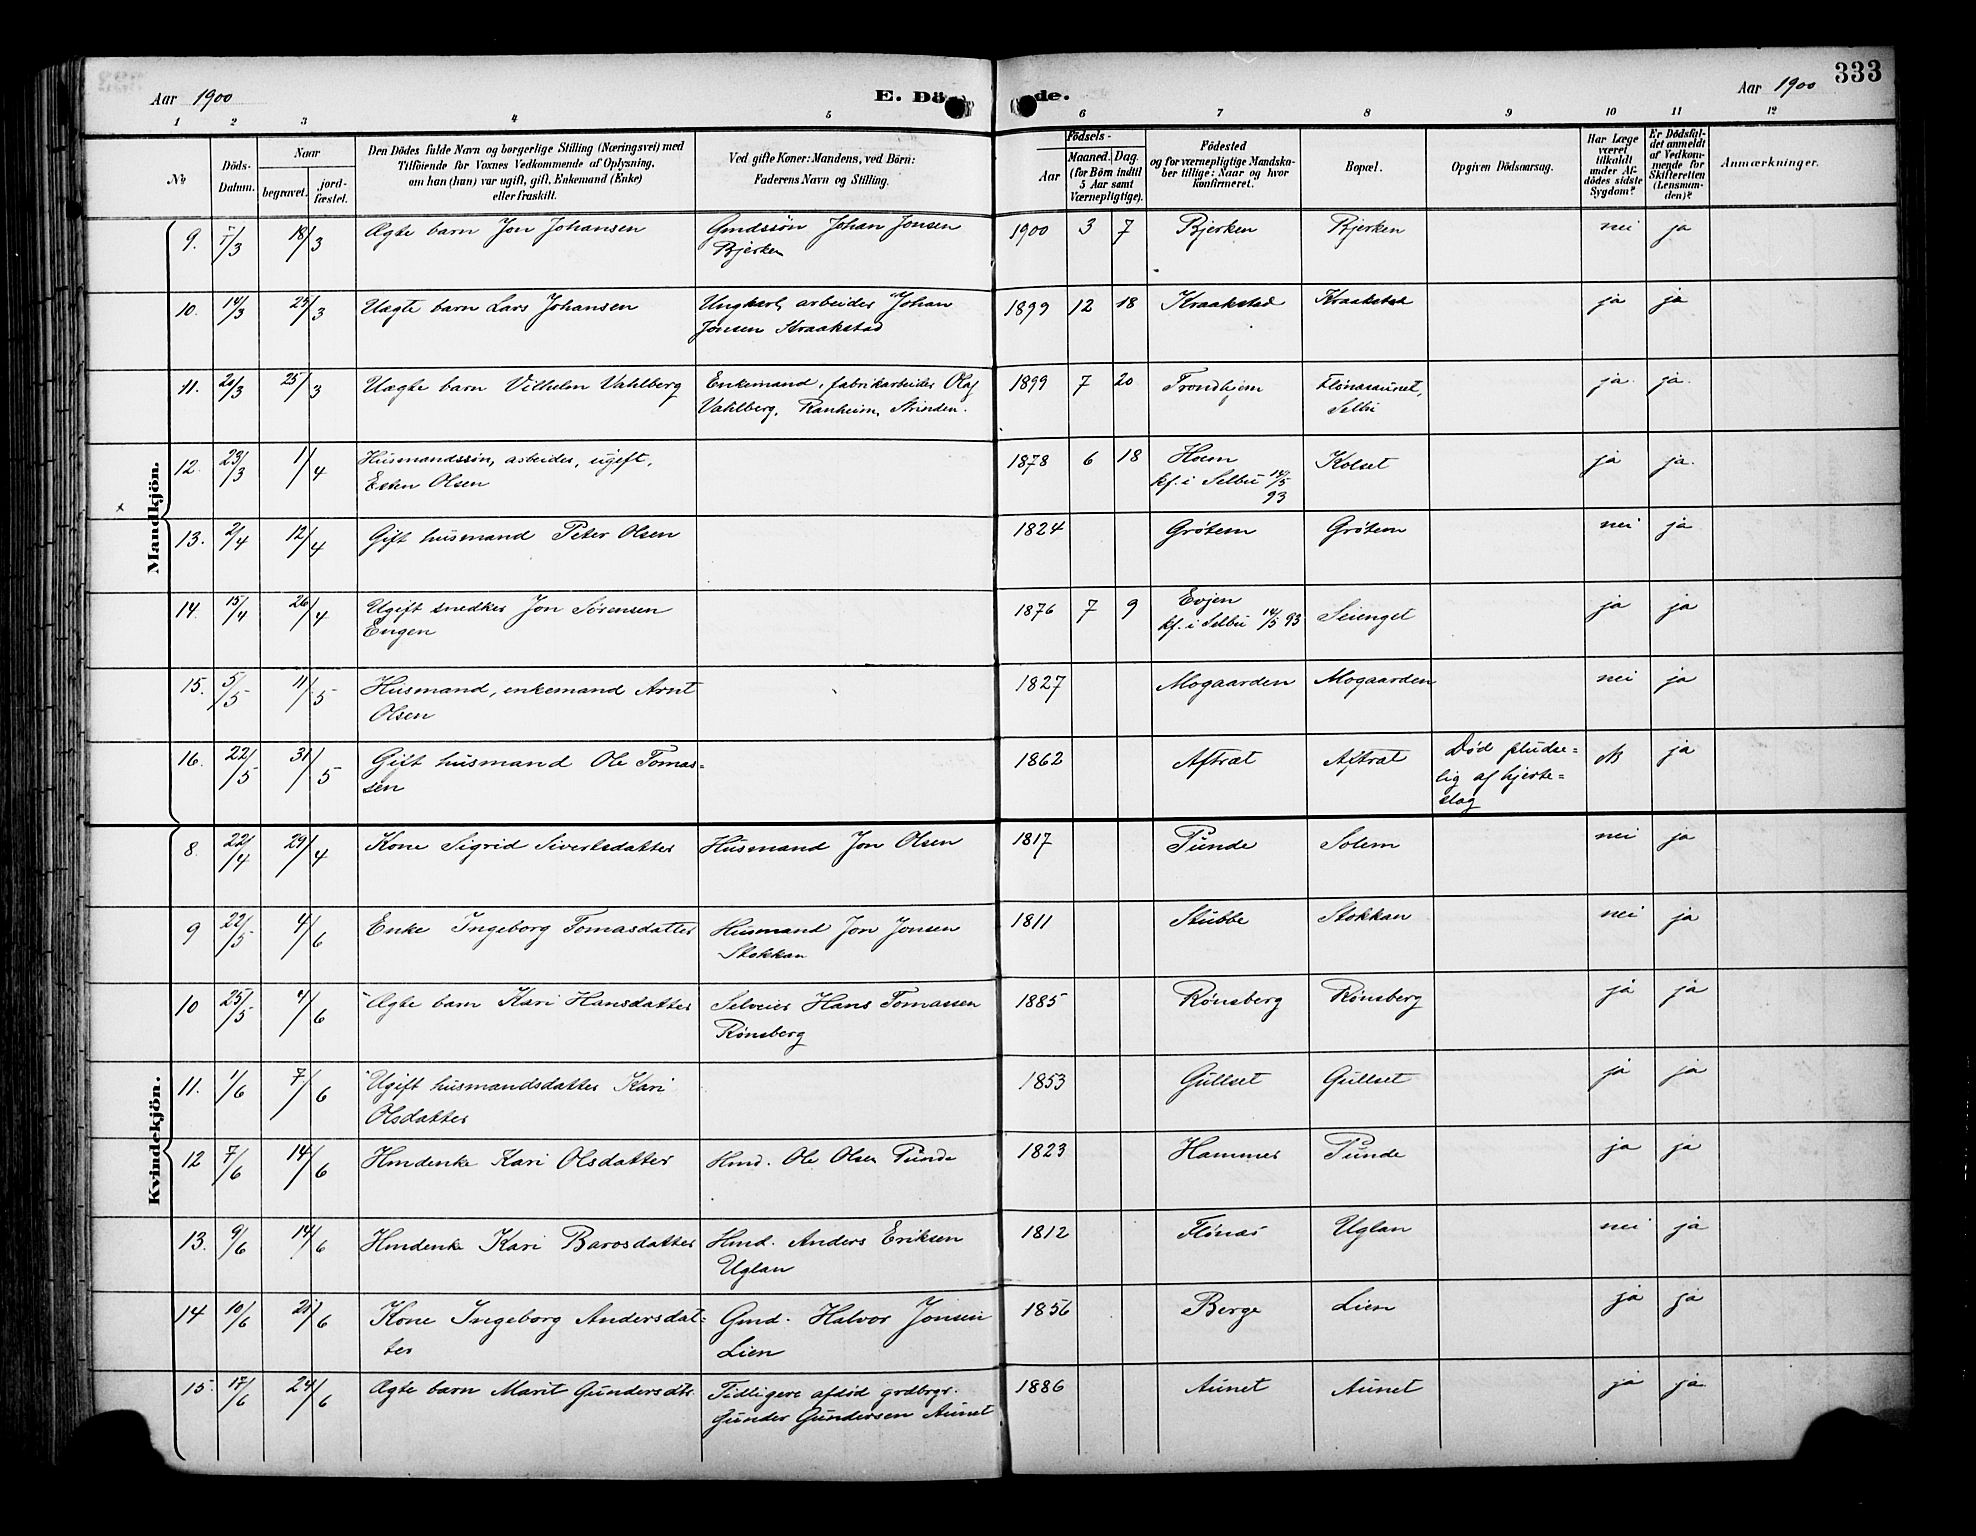 333
Aar 1900
E. Dö de.
Aar 1900
1 2 3 4 5 6 7 8 9 10 11 12
No
Döds-Datum.
Naar
begravet.
jord-fæstet.
Den Dödes fulde Navn og borgerlige Stilling (Næringsvei) med
Tilföiende for Voxnes Vedkommende af Oplysning,
om han (hun) var ugift, gift, Enkemand (Enke)
eller fraskilt.
Ved gifte Koner: Mandens, ved Börn:
Faderens Navn og Stilling.
Födsels-
Aar
Maaned. Dag.
(for Börn indtil
5 Aar samt
Værnepligtige).
Födested
og for værnepligtige Mandska-
ber tillige: Naar og hvor
konfirmeret.
Bopæl.
Opgiven Dödsaarsag.
Har Læge
været
tilkaldt
under Af-
dödes sidste
Sygdom?
Er Dödsfal-
det anmeldt
af Vedkom-
mende for
Skifteretten
(Lensman-
den)?
Anmærkninger.
Mandkjön.
9. 7/3 18/3 Ægte barn Jon Johansen Gmdssøn Johan Jonsen 1900 3 7 Bjerken Bjerken nei ja
Bjerken
10. 14/3 25/3 Uægte barn Lars Johansen Ungkarl, arbeider Johan 1899 12 18 Kraakstad Kraakstad ja ja
Jonsen Kraakstad
11. 20/3 25/3 Uægte barn Vilhelm Vahlberg Enkemand, fabrikarbeider Olaf 1899 7 20 Trondhjem Flønæsaunet, ja. ja.
Vahlberg, Ranheim, Strinden. Selbu
12. 23/3 1/4 Husmandssøn, arbeider, ugift, 1878 6 18 Hoem Kolset ja ja.
Esten Olsen kf. i Selbu 14/5
93
13. 2/4 12/4 Gift husmand Peter Olsen 1824 Grøtem Grøtem nei ja
14. 15/4 26/4 Ugift snedker Jon Sørensen 1876 7 9 Evjen Seienget ja ja
Engen kf. i Selbu 14/5 93
15. 5/5 11/5 Husmand, enkemand Arnt 1827 Mogaarden Mogaarden nei ja
Olsen
16. 22/5 31/5 Gift husmand Ole Tomas= 1862 Aftræt Aftræt Død pludse= ja
sen lig af hjerte=
slag
Kvindekjön.
8. 22/4 29/4 Kone Sigrid Sivertsdatter Husmand Jon Olsen 1817 Punde Solem nei ja
9 22/5 4/6 Enke Ingeborg Tomasdatter Husmand Jon Jonsen 1811 Stubbe Stokkan nei ja
Stokkan
10 25/5 4/6 Ægte barn Kari Hansdatter Selveier Hans Tomassen 1885 Rønsberg Rønsberg ja ja
Rønsberg
11. 1/6 7/6 Ugift husmandsdatter Kari 1853 Gullset Gullset ja ja
Olsdatter
12 7/6 14/6 Hmdenke Kari Olsdatter Hmd. Ole Olsen Punde 1823 Hammer Punde ja ja
13. 9/6 14/6 Hmdenke Kari Barosdatter Hmd. Anders Eriksen 1812 Flønæs Uglan nei ja
Uglan
14 10/6 21/6 Kone Ingeborg Andersdat= Gmd. Halvor Jonsen 1856 Berge Lien ja ja
ter Lien
15. 17/6 24/6 Ægte barn Marit Gundersdtr. Tidligere afdød grdbrgr. 1886 Aunet Aunet ja ja
Gunder Gundersen Aunet